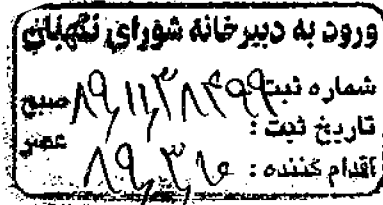 ورود به دبیرخانه شورای نگهبان
شماره ثبت: ۸۹/۱۱/۳۸۴۹۹ صبح
تاریخ ثبت:
اقدام کننده: عصر